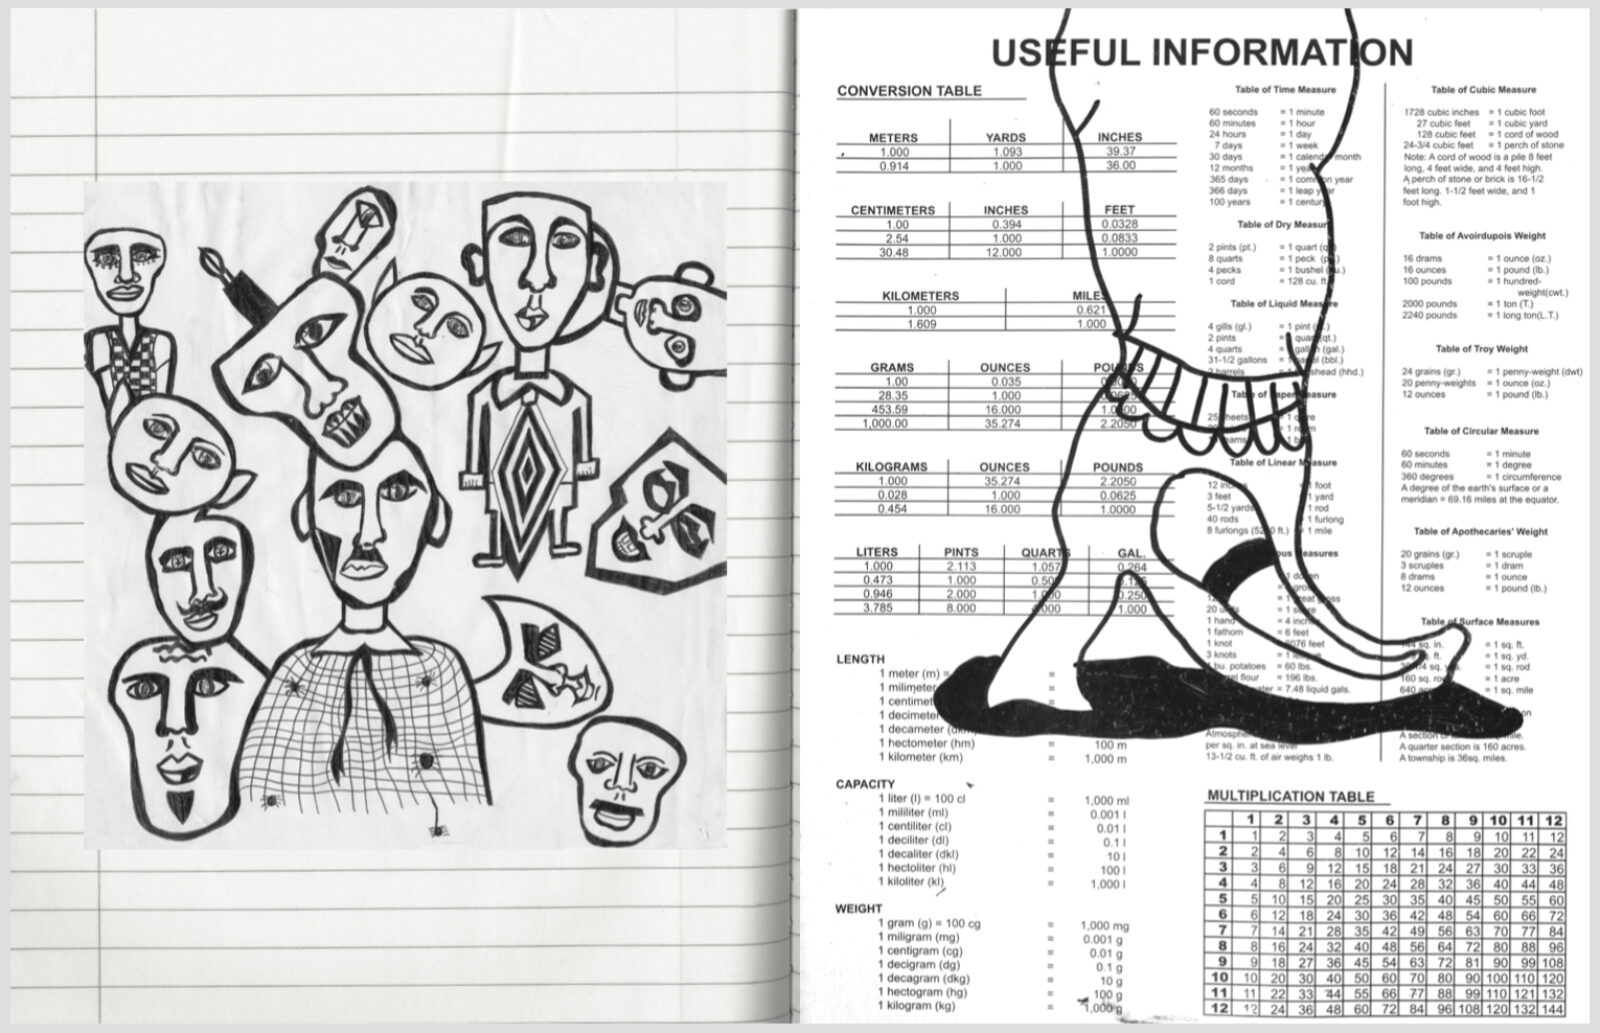 USEFUL INFORMATION
CONVERSION TABLE
METERS YARDS INCHES
1.000 1.093 39.37
0.914 1.000 36.00
CENTIMETERS INCHES FEET
1.00 0.394 0.0328
2.54 1.000 0.0833
30.48 12.000 1.0000
KILOMETERS MILES
1.000 0.621
1.609 1.000
GRAMS OUNCES POUNDS
1.00 0.035
28.35 1.000
453.59 16.000
1,000.00 35.274 2.2050
KILOGRAMS OUNCES POUNDS
1.000 35.274 2.2050
0.028 1.000 0.0625
0.454 16.000 1.0000
LITERS PINTS QUARTS GAL.
1.000 2.113 1.057 0.264
0.473 1.000
0.946 2.000 0.250
3.785 8.000 1.000
LENGTH
1 meter (m) =
1 milimeter
1 centimet
1 decimeter
1 decameter
1 hectometer (hm) = 100 m
1 kilometer (km) = 1,000 m
CAPACITY
1 liter (l) = 100 cl = 1,000 ml
1 mililiter (ml) = 0.001 l
1 centiliter (cl) = 0.01 l
1 deciliter (dl) = 0.1 l
1 decaliter (dkl) = 10 l
1 hectoliter (hl) = 100 l
1 kiloliter (kl) = 1,000 l
WEIGHT
1 gram (g) = 100 cg = 1,000 mg
1 miligram (mg) = 0.001 g
1 centigram (cg) = 0.01 g
1 decigram (dg) = 0.1 g
1 decagram (dkg) = 10 g
1 hectogram (hg) = 100 g
1 kilogram (kg) = 1,000 g
Table of Time Measure
60 seconds = 1 minute
60 minutes = 1 hour
24 hours = 1 day
7 days = 1 week
30 days = 1 calendar month
12 months = 1 year
365 days = 1 common year
366 days = 1 leap year
100 years = 1 century
Table of Dry Measure
2 pints (pt.) = 1 quart
8 quarts = 1 peck
4 pecks = 1 bushel
1 cord = 128 cu. ft.
Table of Liquid Measure
4 gills (gl.) = 1 pint
2 pints = quart (qt.)
4 quarts = gallon (gal.)
31-1/2 gallons = (bbl.)
2 barrels = (hhd.)
Table of Paper Measure
Table of Linear Measure
12 inches foot
3 feet 1 yard
5-1/2 yards 1 rod
40 rods 1 furlong
8 furlongs ft.) = 1 mile
Measures
20 units
1 hand = 4 inches
1 fathom = 6 feet
1 knot 6076 feet
3 knots
bu. potatoes = 60 lbs.
flour = 196 lbs.
= 7.48 liquid gals.
per sq. in. at sea level
13-1/2 cu. ft. of air weighs 1 lb.
Table of Cubic Measure
1728 cubic inches = 1 cubic foot
27 cubic feet = 1 cubic yard
128 cubic feet = 1 cord of wood
24-3/4 cubic feet = 1 perch of stone
Note: A cord of wood is a pile 8 feet
long, 4 feet wide, and 4 feet high.
A perch of stone or brick is 16-1/2
feet long. 1-1/2 feet wide, and 1
foot high.
Table of Avoirdupois Weight
16 drams = 1 ounce (oz.)
16 ounces = 1 pound (lb.)
100 pounds = 1 hundred-
weight(cwt.)
2000 pounds = 1 ton (T.)
2240 pounds = 1 long ton(L.T.)
Table of Troy Weight
24 grains (gr.) = 1 penny-weight (dwt)
20 penny-weights = 1 ounce (oz.)
12 ounces = 1 pound (lb.)
Table of Circular Measure
60 seconds = 1 minute
60 minutes = 1 degree
360 degrees = 1 circumference
A degree of the earth's surface or a
meridian = 69.16 miles at the equator.
Table of Apothecaries' Weight
20 grains (gr.) = 1 scruple
3 scruples = 1 dram
8 drams = 1 ounce
12 ounces = 1 pound (lb.)
Table of Surface Measures
sq. in. = 1 sq. ft.
ft. = 1 sq. yd.
= 1 sq. rod
160 sq. rods = 1 acre
640 = 1 sq. mile
A section
A quarter section is 160 acres.
A township is 36sq. miles.
MULTIPLICATION TABLE
1 2 3 4 5 6 7 8 9 10 11 12
1 1 2 3 4 5 6 7 8 9 10 11 12
2 2 4 6 8 10 12 14 16 18 20 22 24
3 3 6 9 12 15 18 21 24 27 30 33 36
4 4 8 12 16 20 24 28 32 36 40 44 48
5 5 10 15 20 25 30 35 40 45 50 55 60
6 6 12 18 24 30 36 42 48 54 60 66 72
7 7 14 21 28 35 42 49 56 63 70 77 84
8 8 16 24 32 40 48 56 64 72 80 88 96
9 9 18 27 36 45 54 63 72 81 90 99 108
10 10 20 30 40 50 60 70 80 90 100 110 120
11 11 22 33 44 55 66 77 88 99 110 121 132
12 12 24 36 48 60 72 84 96 108 120 132 144